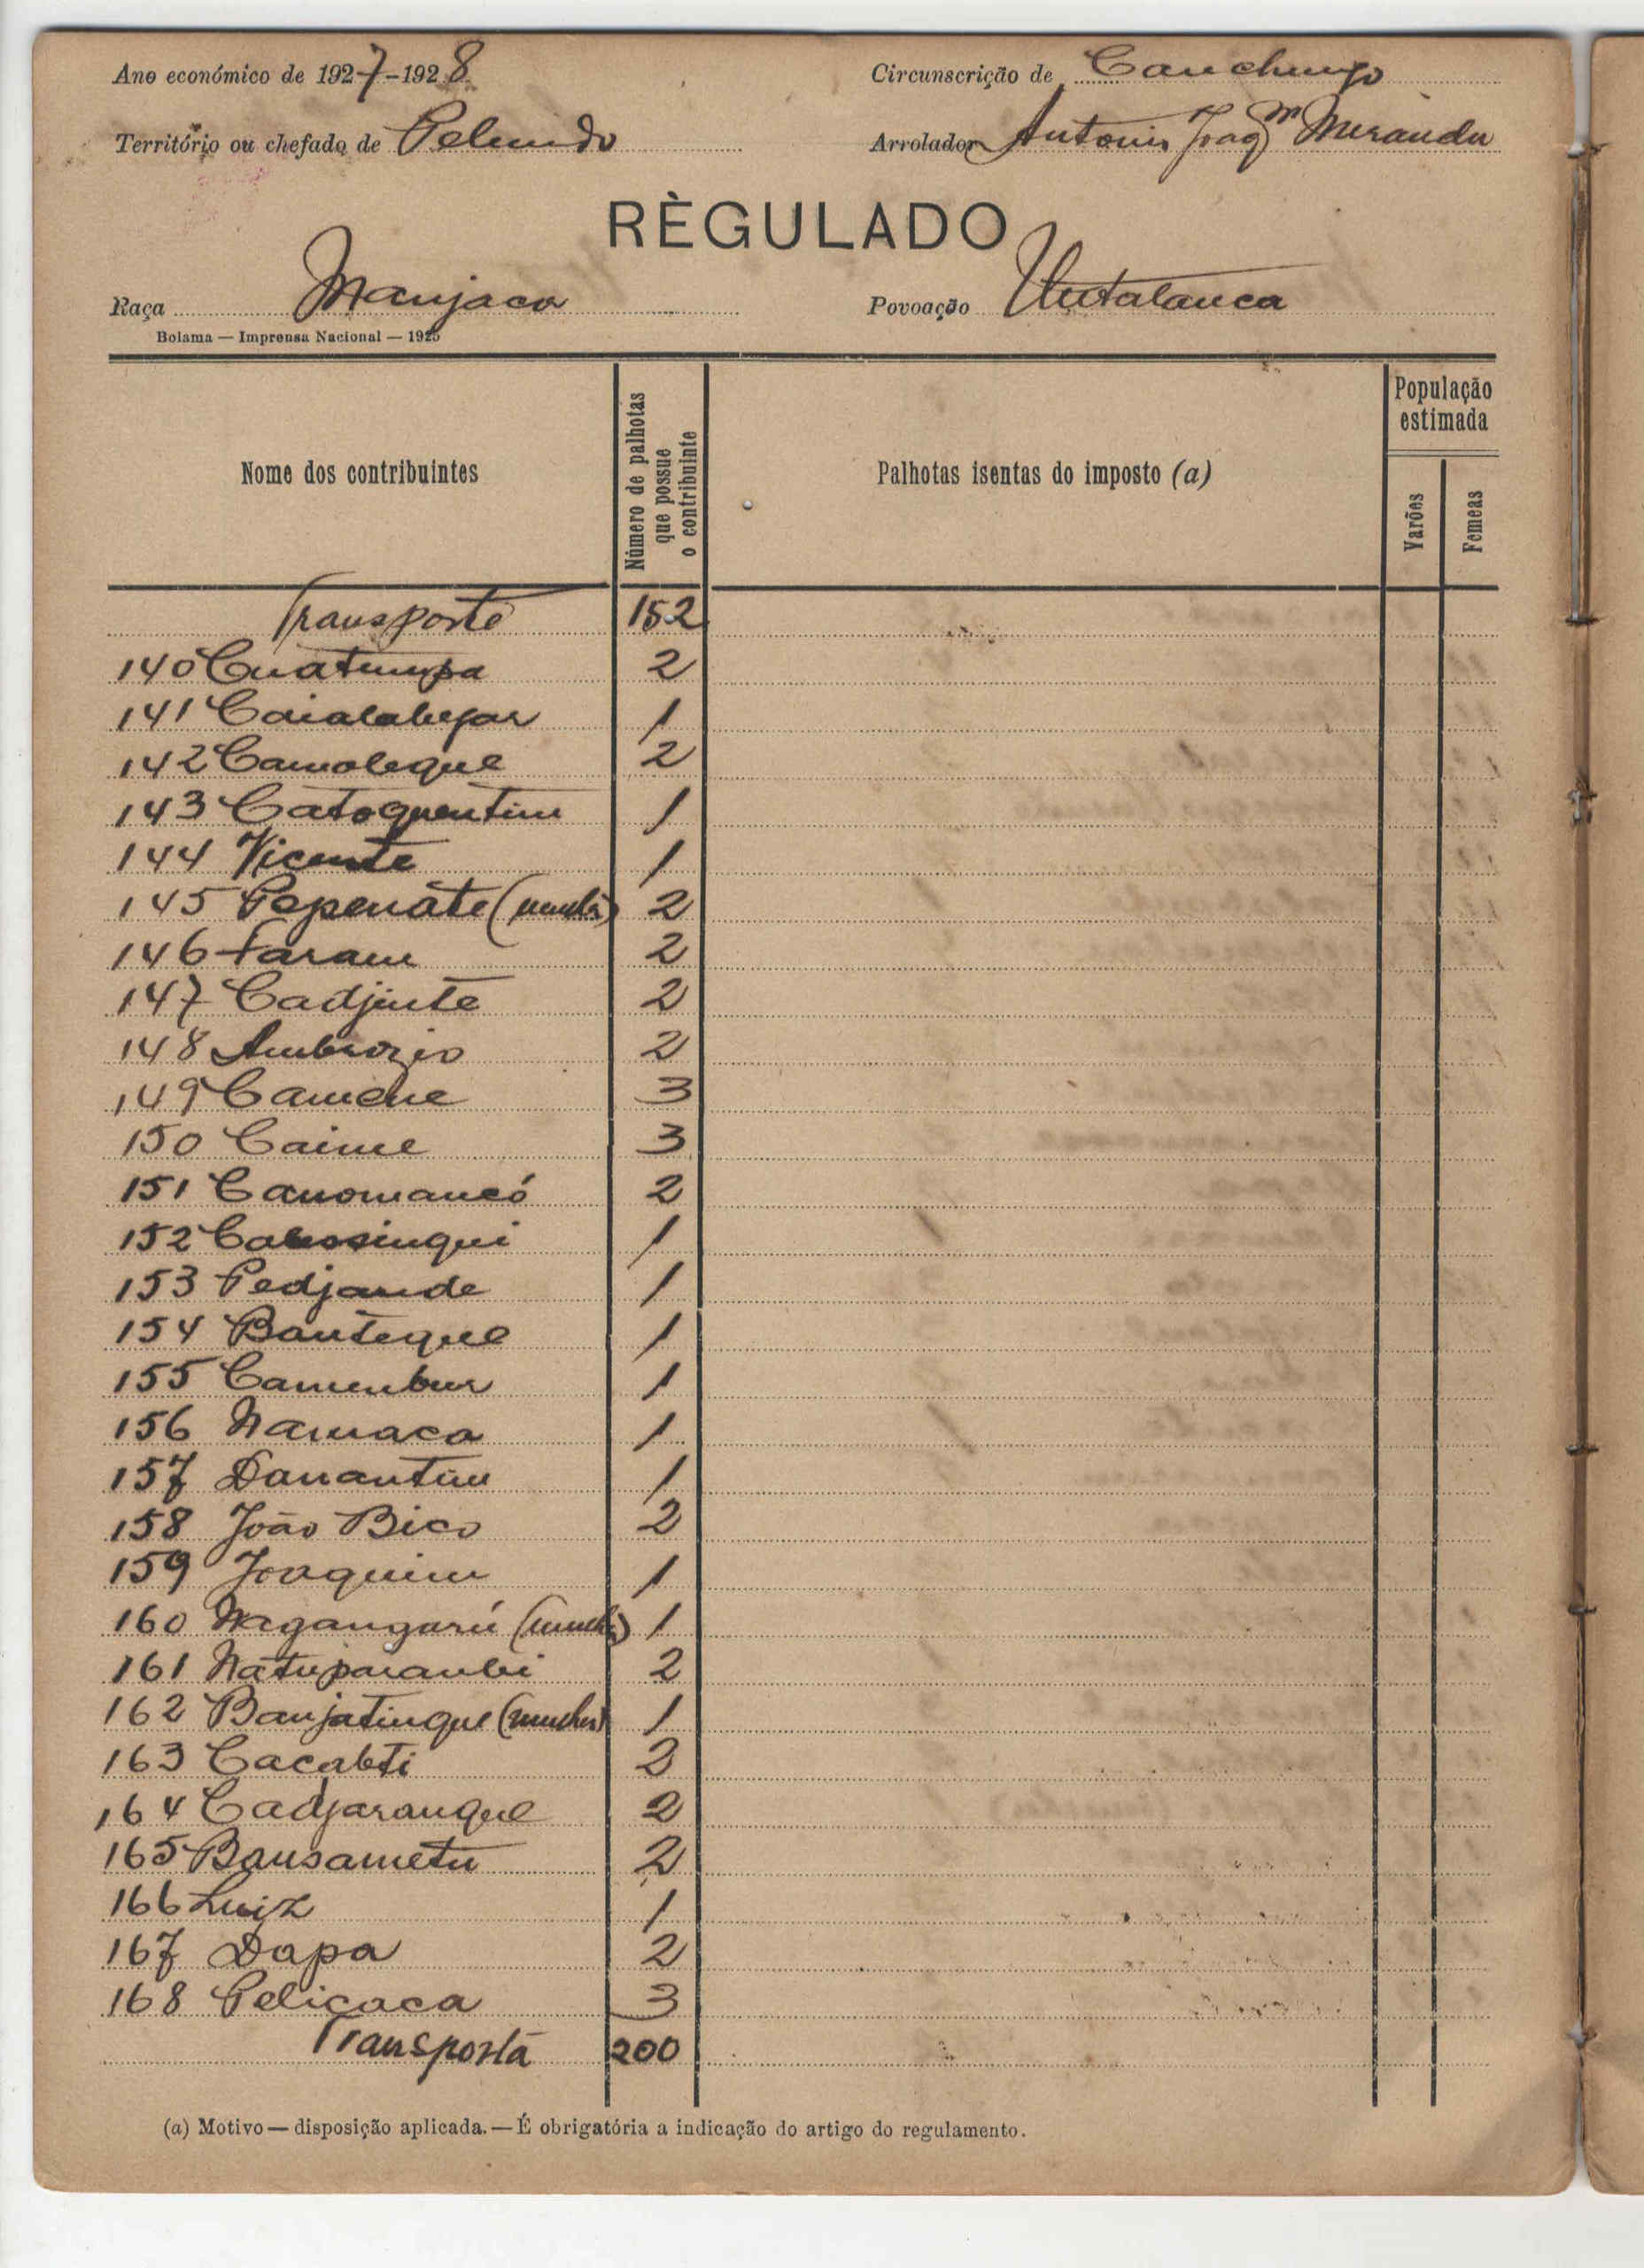 Ano económico de 1927-1928 Circunscrição de Canchungo
Território ou chefado de Pelundo Arrolador Antonio Joaqm Miranda
RÈGULADO
Raça Manjaca Povoação Utatalanca
Bolama — Imprensa Nacional — 1925
Nome dos contribuintes Número de palhotas que possue o contribuinte Palhotas isentas do imposto (a) População estimada
Varões Femeas
Transporte 152
140 Cuatumpa 2
141 1
142 Camoleque 2
143 Catoquentim 1
144 Vicente 1
145 Pepenate 2
146 Faram 2
147 Cadjinte 2
148 Ambrozio 2
149 Camene 3
150 Caime 3
151 Canomancó 2
152 1
153 Pedjande 1
154 Banteque 1
155 Camenbur 1
156 Namaca 1
157 Danantim 1
158 João Bico 2
159 Joaquim 1
160 1
161 2
162 Banjatinque 1
163 Cacabti 2
164 Cadjaranque 2
165 Bansametu 2
166 Luiz 1
167 Dapa 2
168 Pelicaca 3
Transporta 200
(a) Motivo — disposição aplicada. — É obrigatória a indicação do artigo do regulamento.